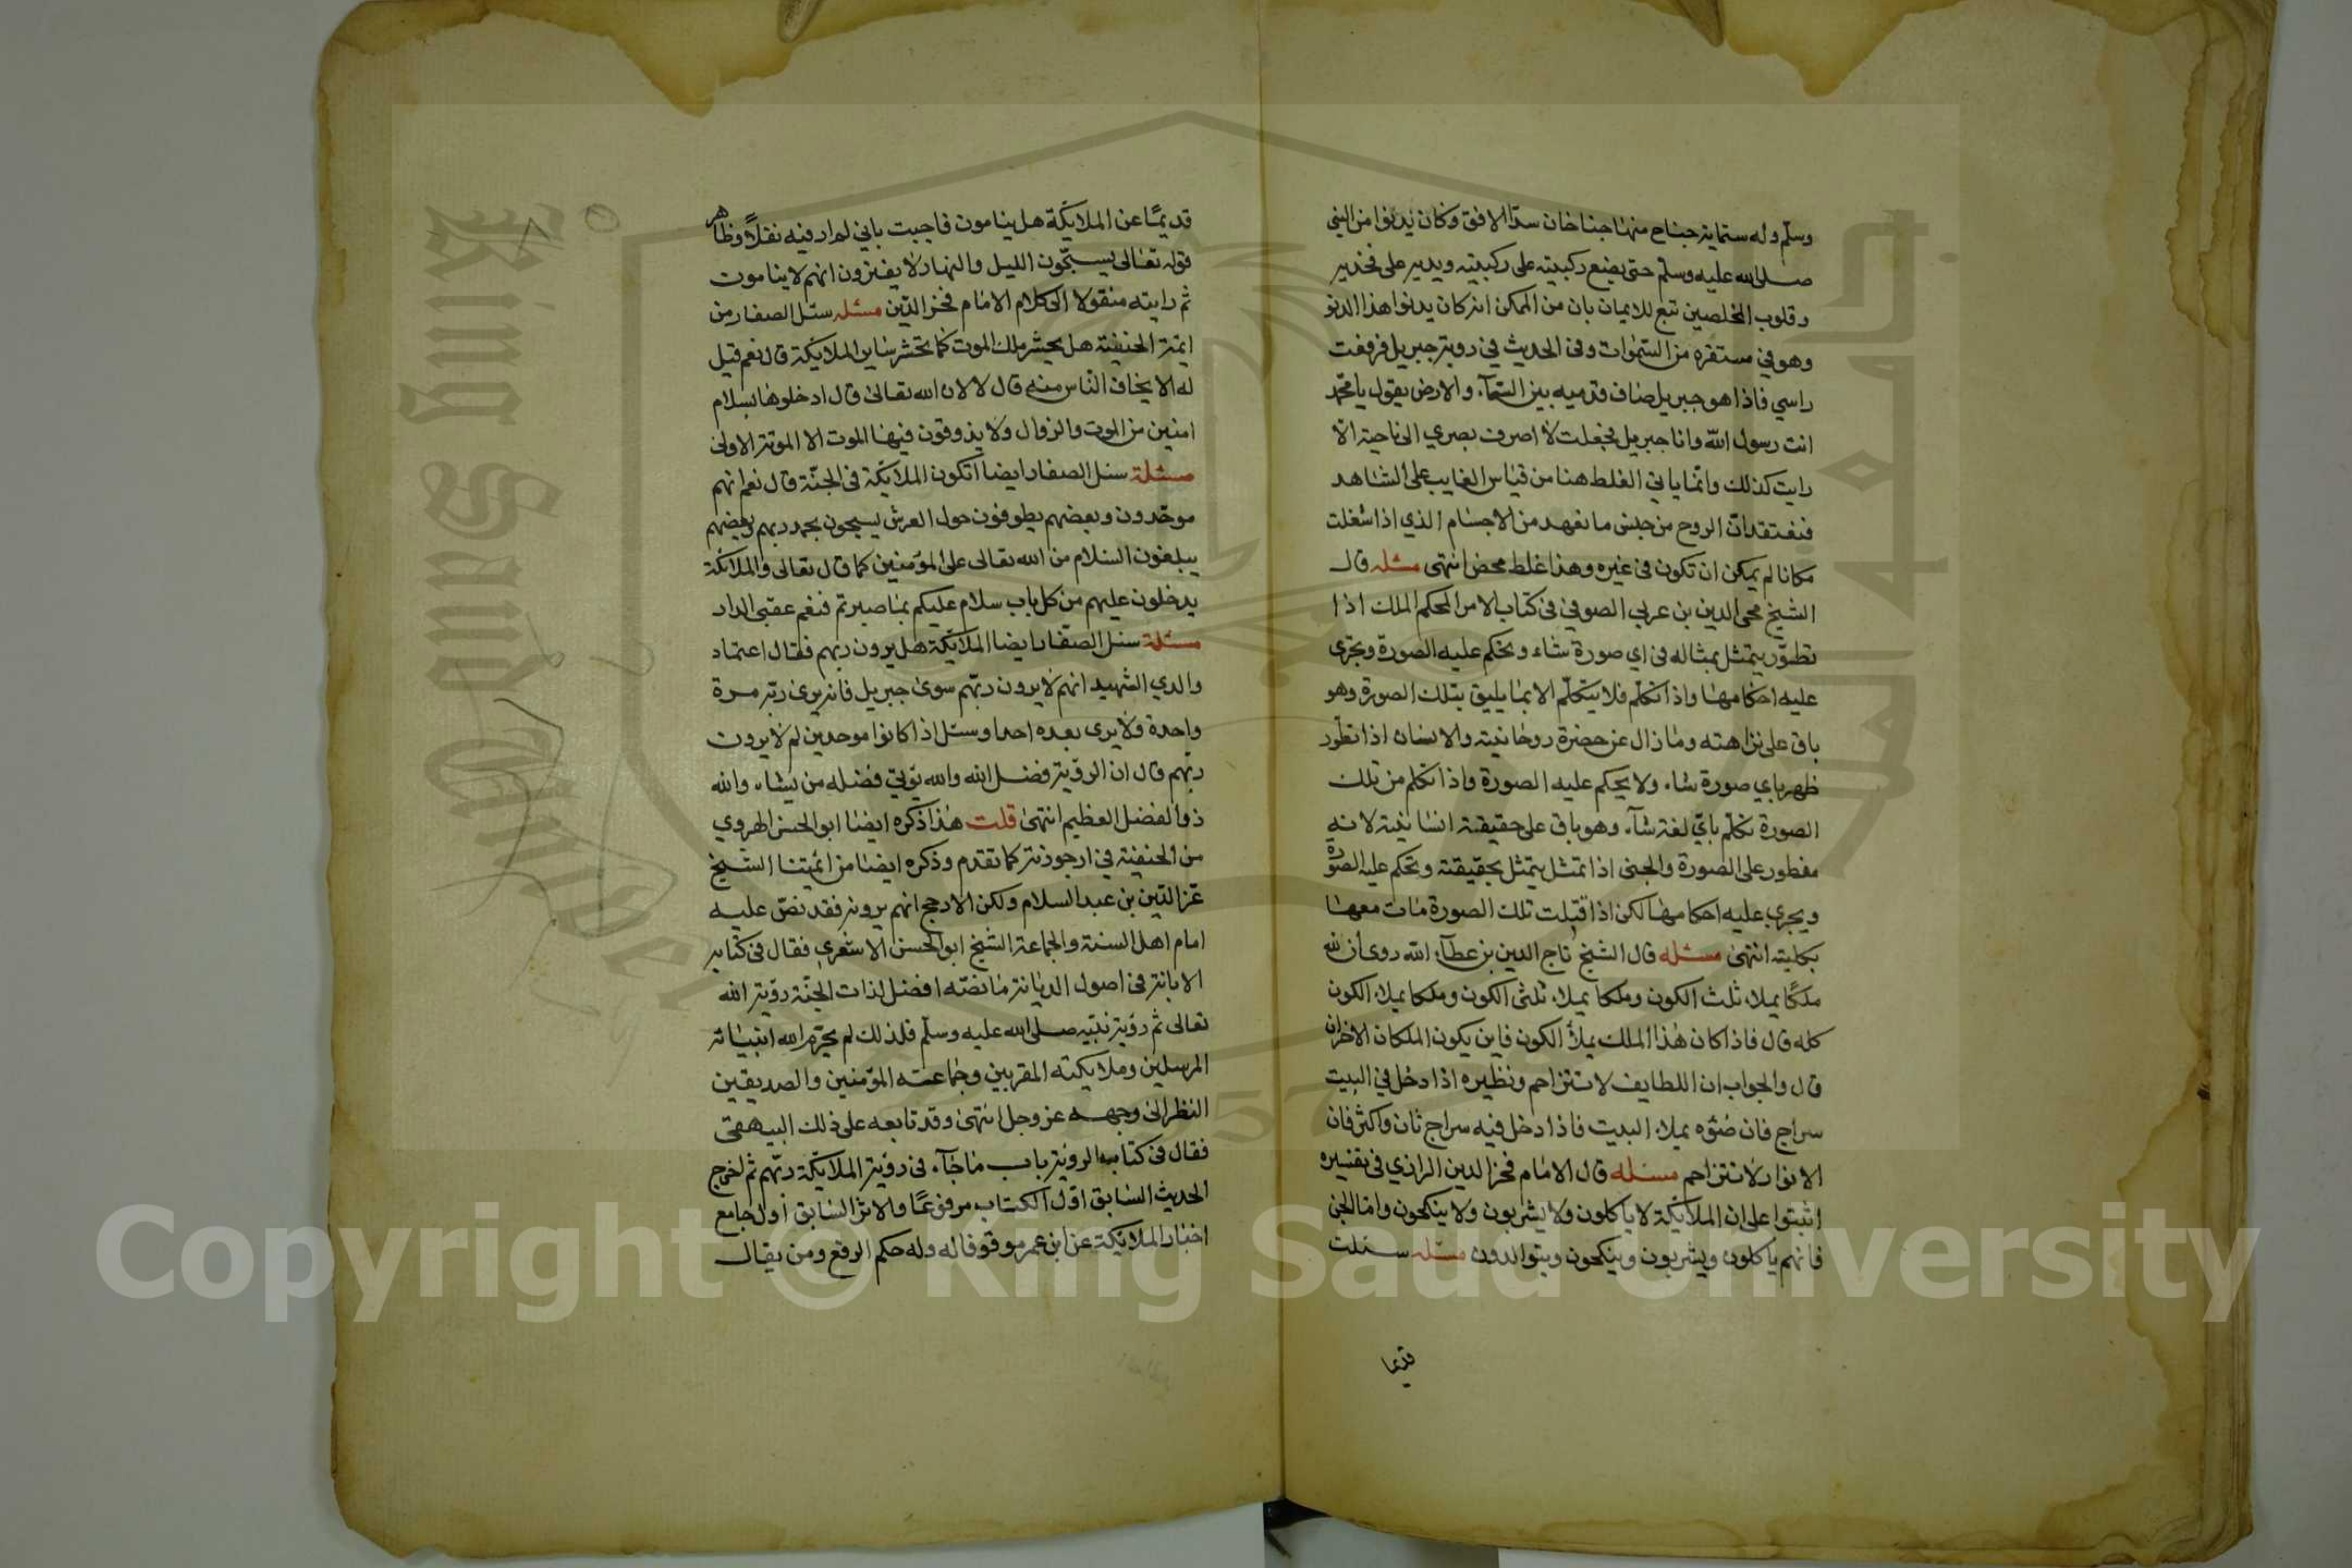 وسلم وله ستماية جناح منها جناحان سدا الافق وكان يدنوا من النبي
صلى الله عليه وسلم حتى يضع ركبتيه على ركبتيه ويديه على فخذيه
وقلوب المخلصين تتسع للايمان بان من الممكن انه كان يدنوا هذا الدنو
وهو في مستقره من السموات وفى الحديث في رويته جبريل فرفعت
راسي فاذا هو جبريل صاف قدميه بين السمآء والارض يقول يا محمد
انت رسول الله وانا جبريل فجعلت لا اصرف بصري الى ناحية الا
رايته كذلك وانما ياتي الغلط هنا من قياس الغايب على الشاهد
فنعتقد ان الروح من جنس ما نعهد من الاجسام الذي اذا شغلت
مكانا لم يمكن ان تكون في غيره وهذا غلط محض انتهى مسئله قال
الشيخ محى الدين بن عربي الصوفي في كتاب الامر المحكم الملك اذا
تطور يتمثل بمثاله في اي صورة شاء وتحكم عليه الصورة وتجرى
عليه احكامها واذا تكلم فلا يتكلم الا بما يليق بتلك الصورة وهو
باق على نزاهته وما زال عن حضرة روحانيته والانسان اذا تطور
ظهر باي صورة شاء ولا يحكم عليه الصورة واذا تكلم من تلك
الصورة تكلم باي لغة شآء وهو باق على حقيقة انسانيته لانه
مفطور على الصورة والجنى اذا تمثل يتمثل بحقيقته وتحكم عليه الصورة
ويجري عليه احكامها لكن اذا قتلت تلك الصورة مات معها
بكليته انتهى مسئله قال الشيخ تاج الدين بن عطآء الله روى ان لله
ملكا يملاء ثلث الكون وملكا يملاء ثلثى الكون وملكا يملاء الكون
كله قال فاذا كان هذا الملك يملأ الكون فاين يكون الملكان الاخران
قال والجواب ان اللطايف لا تتزاحم ونظيره اذا دخل في البيت
سراج فان ضوءه يملاء البيت فاذا دخل فيه سراج ثان واكثر فان
الانوار لا تتزاحم مسئله قال الامام فخر الدين الرازي في تفسيره
اتبتوا على ان الملائكة لا ياكلون ولا يشربون ولا ينكحون واما الجن
فانهم ياكلون ويشربون وينكحون ويتوالدون مسئله سئلت
قديما
قديما عن الملايكة هل ينامون فاجبت باني لم ار فيه نقلا وظاهر
قوله تعالى يسبحون الليل والنهار لا يفترون انهم لا ينامون
ثم رايته منقولا الى كلام الامام فخر الدين مسئله سئل الصفار من
ايمة الحنفية هل يحشر ملك الموت كما تحشر ساير الملايكة قال نعم قيل
له الا يخاف الناس منه قال لا لان الله تعالى قال ادخلوها بسلام
امنين من الموت والزوال ولا يذوقون فيها الموت الا الموتة الاولى
مسئلة سئل الصفار ايضا اتكون الملائكة في الجنة قال نعم انهم
موحدون وبعضهم يطوفون حول العرش يسبحون بحمد ربهم وبعضهم
يبلغون السلام من الله تعالى على المؤمنين كما قال تعالى والملائكة
يدخلون عليهم من كل باب سلام عليكم بما صبرتم فنعم عقبى الدار
مسئلة سئل الصفار ايضا الملائكة هل يرون ربهم فقال اعتماد
والدي الشهيد انهم لا يرون ربهم سوى جبريل فانه يرى ربه مرة
واحدة ولا يرى بعده احدا وسئل اذا كانوا موحدين لم لا يرون
ربهم قال ان الرؤية فضل الله والله يؤتي فضله من يشاء والله
ذو الفضل العظيم انتهى قلت هذا ذكره ايضا ابو الحسن الهروي
من الحنفية في ارجوزته كما تقدم وذكره ايضا من ائمتنا الشيخ
عز الدين بن عبد السلام ولكن الارجح انهم يرونه فقد نص عليه
امام اهل السنة والجماعة الشيخ ابو الحسن الاشعري فقال في كتابه
الابانة في اصول الديانة ما نصه افضل لذات الجنة رؤية الله
تعالى ثم رؤية نبيه صلى الله عليه وسلم فلذلك لم يحرم الله انبيائه
المرسلين وملايكته المقربين وجماعة المؤمنين والصديقين
النظر الى وجهه عز وجل انتهى وقد تابعه على ذلك البيهقى
فقال في كتاب الروية باب ما جآء في رؤية الملائكة ربهم ثم اخرج
الحديث السابق اول الكتاب مرفوعا والاثر السابق اول جامع
اخبار الملائكة عن ابن عمر موقوفا له وله حكم الرفع ومن يقال
King Saud University
Copyright © King Saud University
جامعة الملك سعود
1957